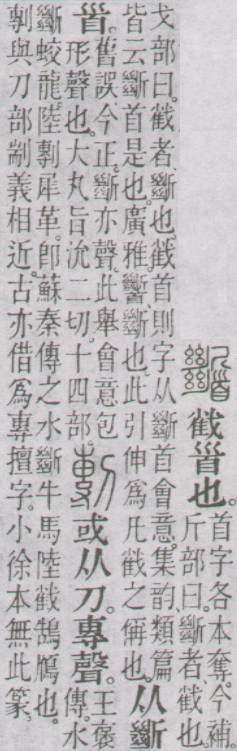 𩠹 截𩠐也。首字各本奪。今補。
斤部曰。斷者、截也。
戈部曰。截者、斷也。截首則字从斷首會意。集韵、類篇
皆云斷首是也。廣雅。𩠹、斷也。此引伸爲凡截之偁也。从斷
𩠐。舊誤今正。斷亦聲。此舉會意包
形聲也。大丸旨沇二切。十四部。剸 或从刀。專聲。王褒
傳。水
斷蛟龍。陸剸犀革。卽蘇秦傳之水斷牛馬。陸截鵠鴈也。
剸與刀部剬義相近。古亦借爲專擅字。小徐本無此篆。